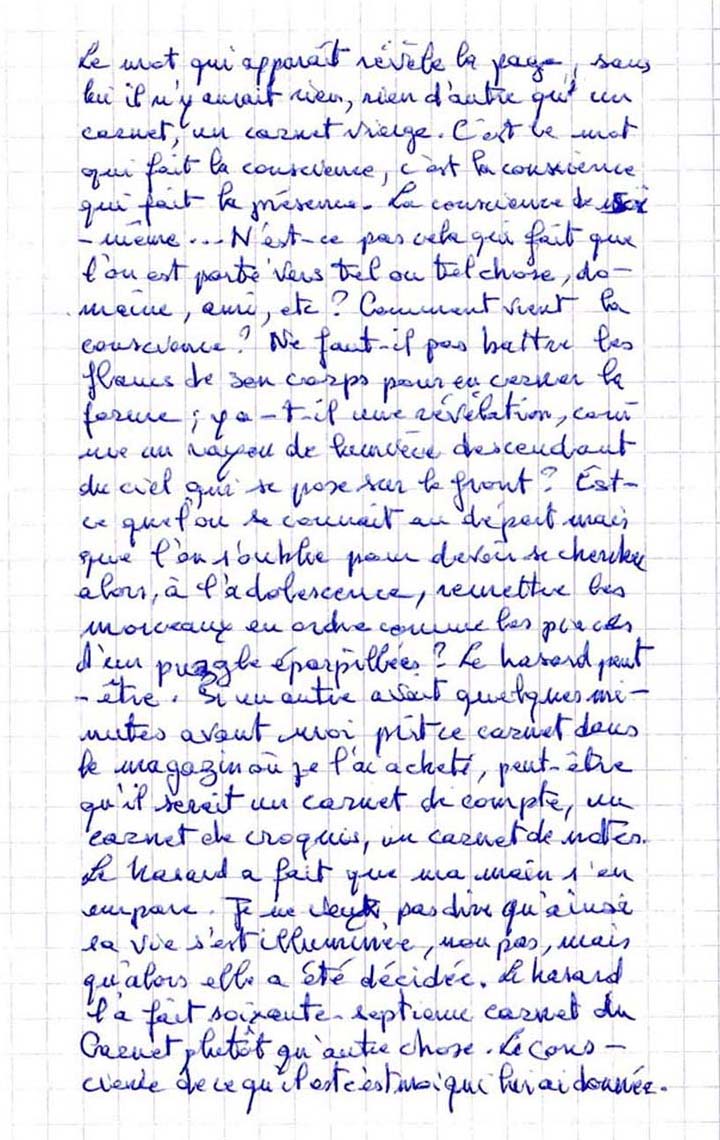 Le mot qui apparaît révèle la page, sans
lui il n'y aurait rien, rien d'autre qu'un
carnet, un carnet vierge. C'est le mot
qui fait la conscience, c'est la conscience
qui fait la présence. La conscience de soi
-même... N'est-ce pas cela qui fait que
l'on est porté vers tel ou tel chose, do-
maine, ami, etc ? Comment vient la
conscience ? Ne faut-il pas battre les
flancs de son corps pour en cerner la
forme ; y a-t-il une révélation, com
me un rayon de lumière descendant
du ciel qui se pose sur le front ? Est-
ce que l'on se connait au départ mais
que l'on s'oublie pour devoir se chercher
alors, à l'adolescence, remettre les
morceaux en ordre comme les pièces
d'un puzzle éparpillées ? Le hasard peut
-être. Si un autre avait quelques mi-
nutes avant moi prit ce carnet dans
le magazin où je l'ai acheté, peut-être
qu'il serait un carnet de compte, un
carnet de croquis, un carnet de notes.
Le hasard a fait que ma main s'en
empare. Je ne veux pas dire qu'ainsi
sa vie s'est illuminée, non pas, mais
qu'alors elle a été décidée. Le hasard
l'a fait soixante-septième carnet du
Carnet plutôt qu'autre chose. Le cons-
cience de ce qu'il est c'est moi qui lui ai donnée.